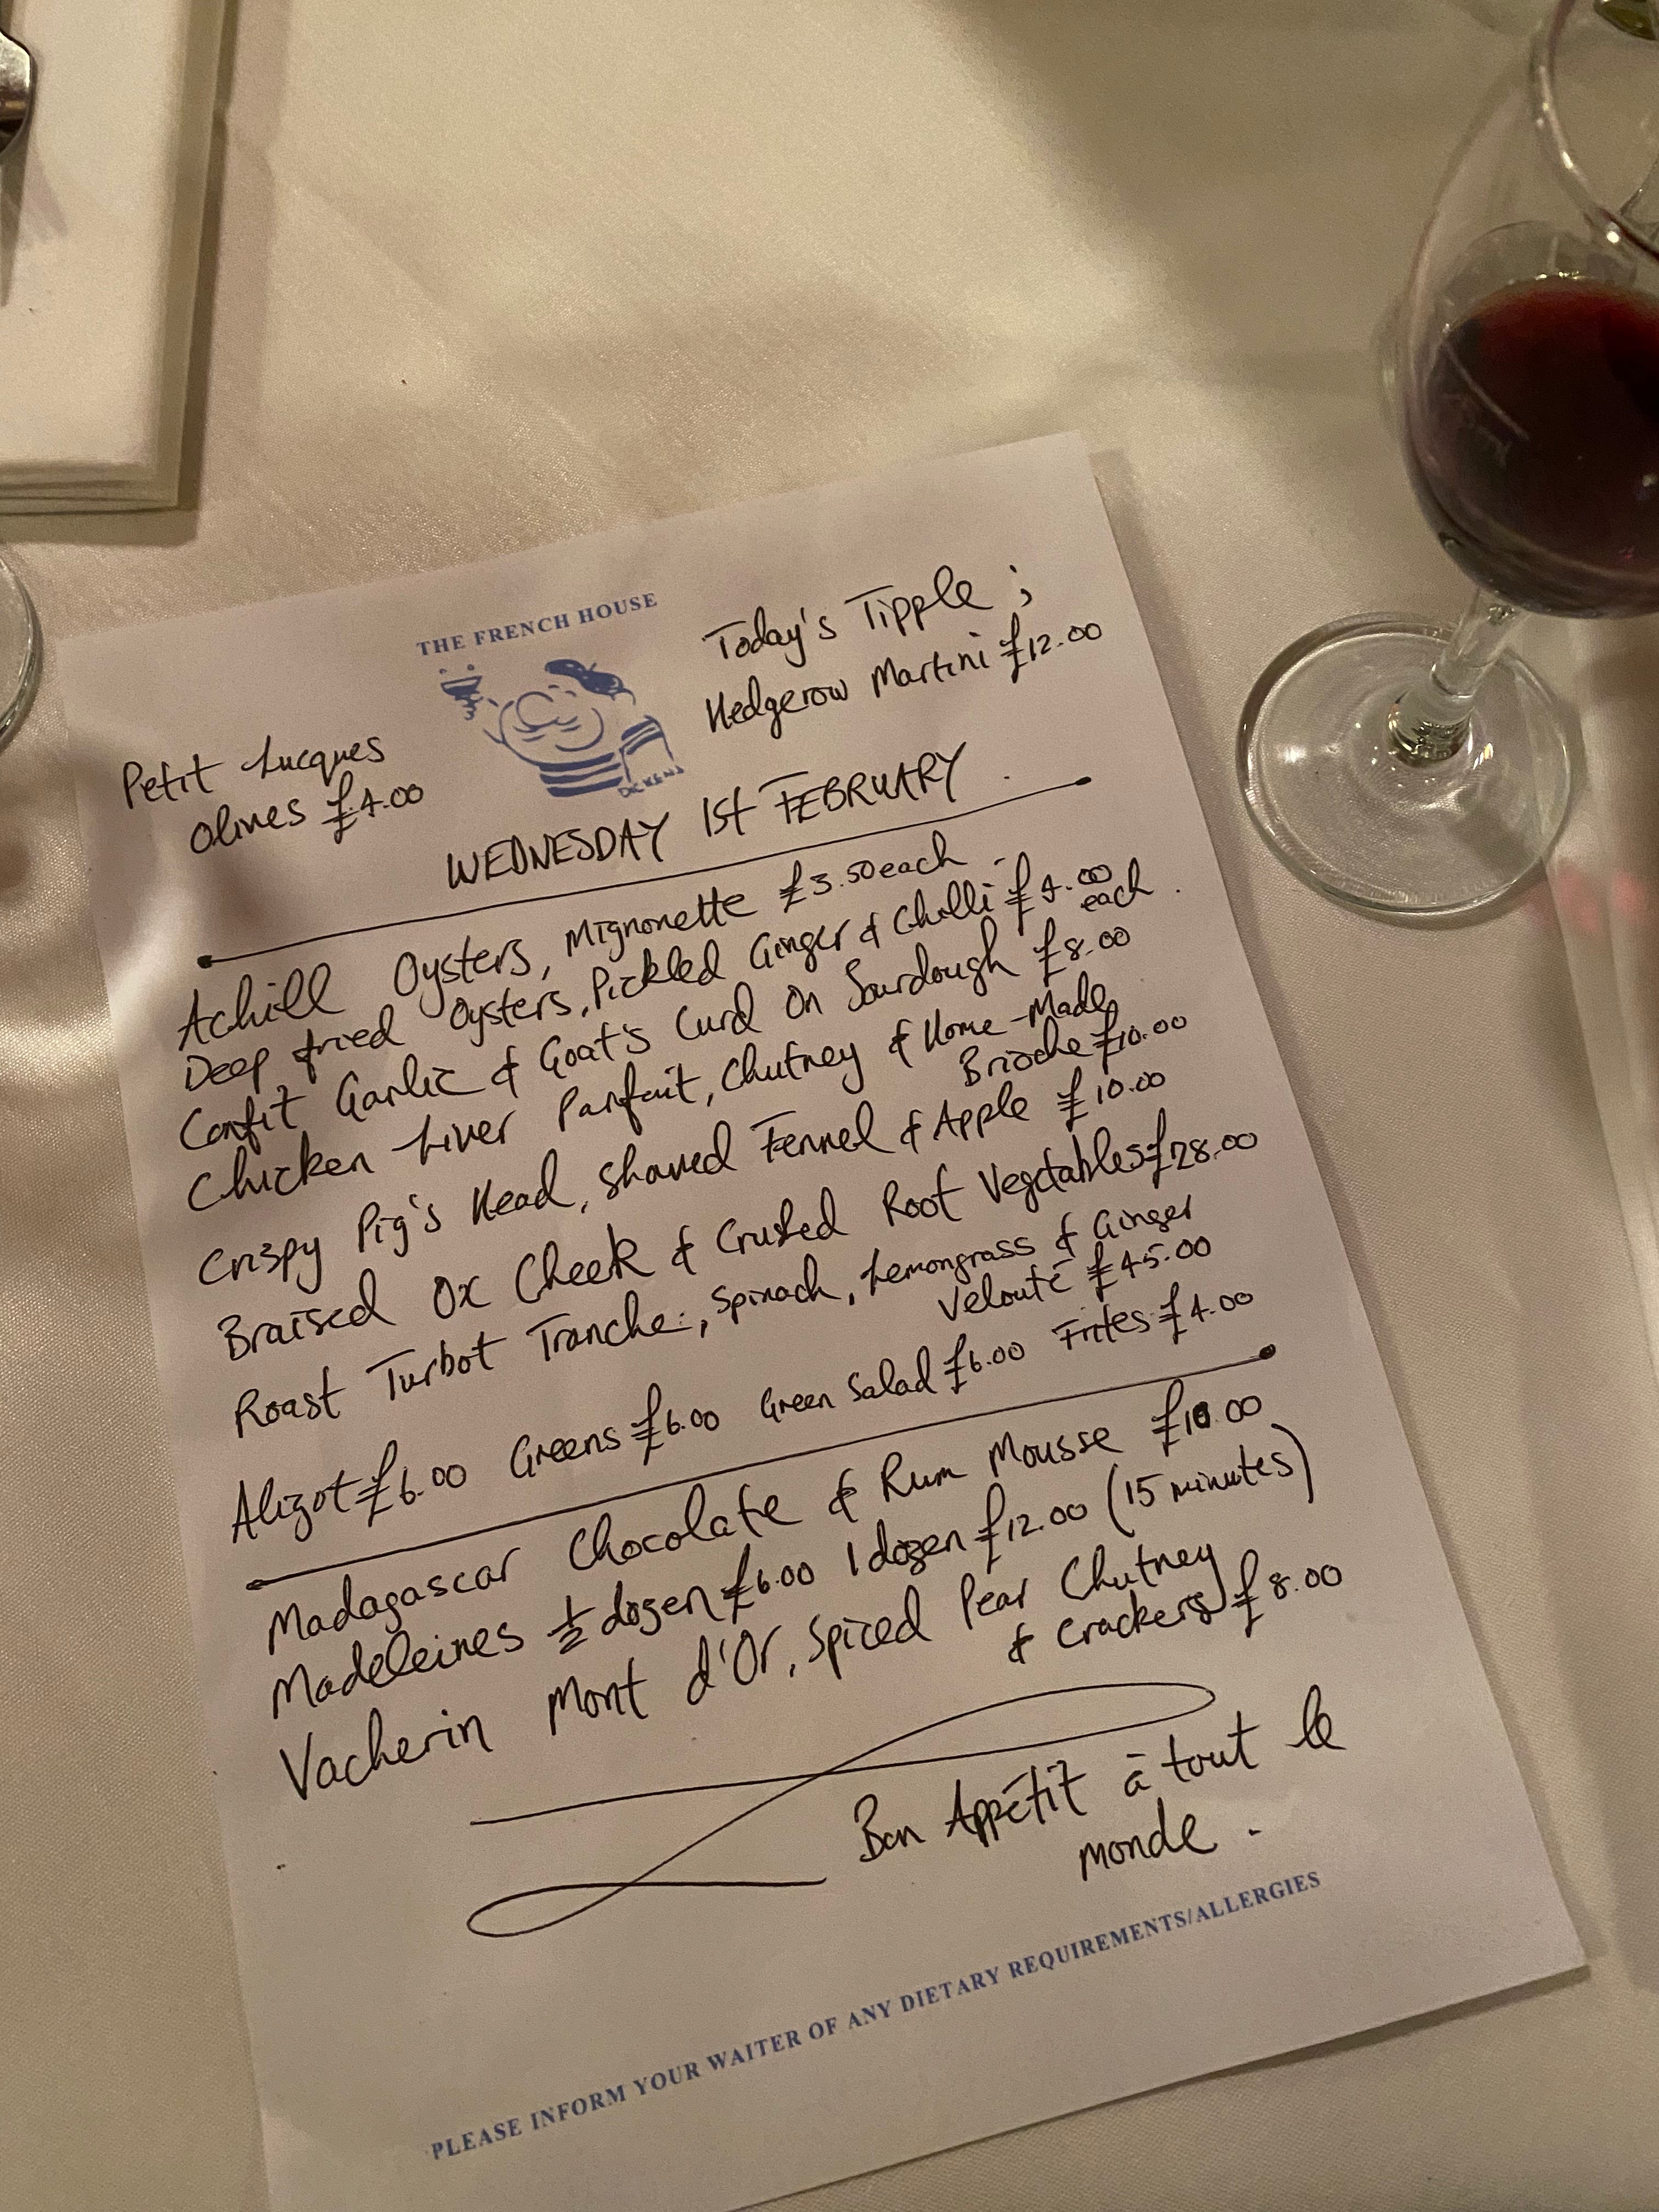 THE FRENCH HOUSE
Today's Tipple ;
Hedgerow Martini £12.00
Petit Lucques
Olives £4.00
DICKENS
WEDNESDAY 1st FEBRUARY
Achill Oysters, Mignonette £3.50 each
Deep fried Oysters, Pickled Ginger & Chilli £4.00
each
Confit Garlic & Goat's Curd On Sourdough £8.00
Chicken Liver Parfait, Chutney & Home-Made
Brioche £10.00
Crispy Pig's Head, Shaved Fennel & Apple £10.00
Braised Ox Cheek & Crushed Root Vegetables £28.00
Roast Turbot Tranche, Spinach, Lemongrass & Ginger
Velouté £45.00
Aligot £6.00 Greens £6.00 Green Salad £6.00 Frites £4.00
Madagascar Chocolate & Rum Mousse £10.00
Madeleines ½ dozen £6.00 1 dozen £12.00 (15 minutes)
Vacherin Mont d'Or, Spiced Pear Chutney
& Crackers £8.00
Bon Appétit à tout le
monde.
PLEASE INFORM YOUR WAITER OF ANY DIETARY REQUIREMENTS/ALLERGIES